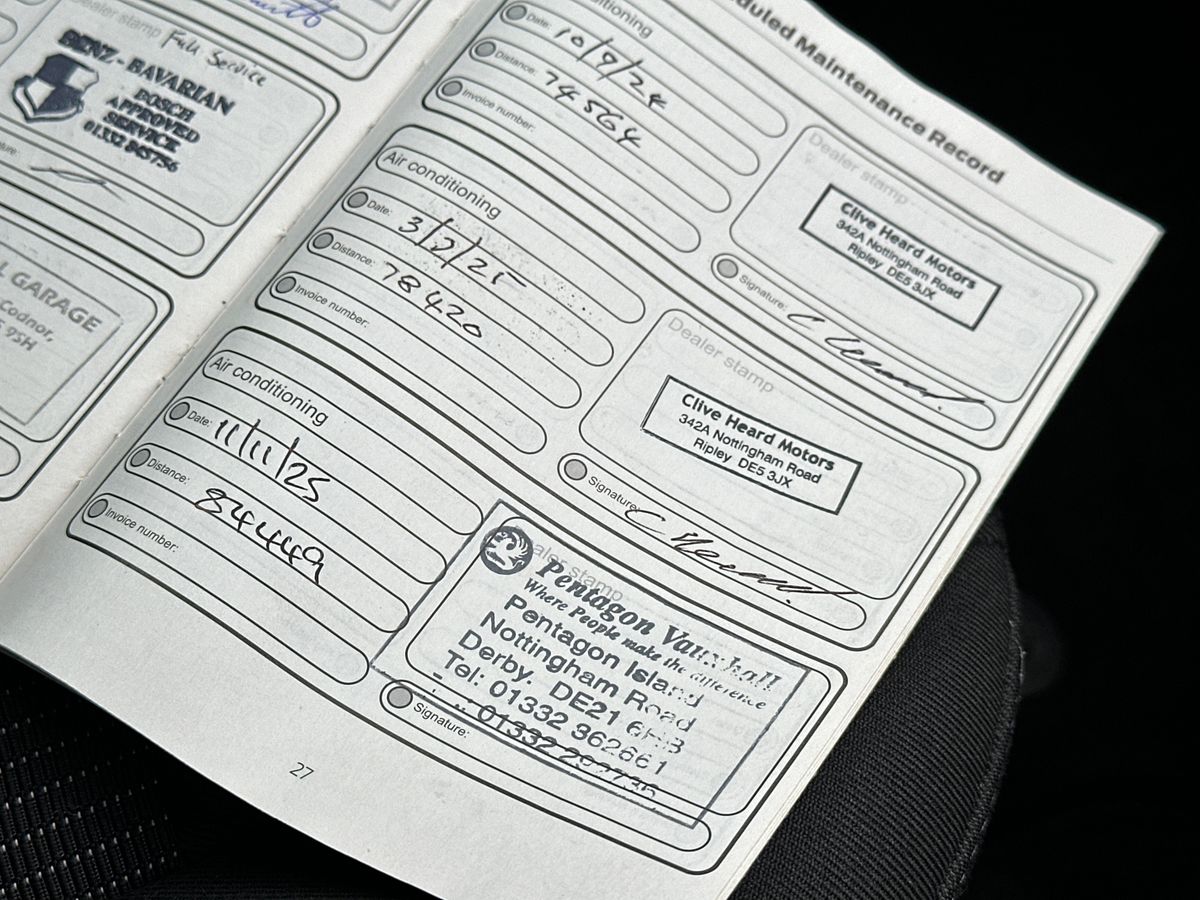 Full Service
BENZ - BAVARIAN
BOSCH
APPROVED
SERVICE
01332 845756
GARAGE
Codnor,
Scheduled Maintenance Record
Date: 10/9/24
Distance: 74564
Invoice number:
Dealer stamp
Clive Heard Motors
342A Nottingham Road
Ripley DE5 3JX
Signature: C Heard
Air conditioning
Date: 3/2/25
Distance: 78420
Invoice number:
Dealer stamp
Clive Heard Motors
342A Nottingham Road
Ripley DE5 3JX
Signature: C Heard
Air conditioning
Date: 11/11/25
Distance: 84449
Invoice number:
Dealer stamp
Pentagon Vauxhall
Where People make the difference
Pentagon Island
Nottingham Road
Derby. DE21 6HB
Tel: 01332 362661
Signature:
27